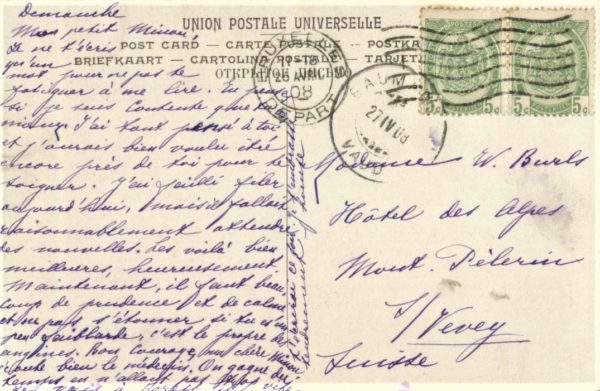 Demanche
Mon petit Minou!
Je ne t'écris
qu'un
mot pour ne pas te
fatiguer à me lire. Tu penses
si je suis contente que tu
mieux! J'ai tant pensé à toi
et j'aurais bien voulu être
encore près de toi pour te
soigner. J'ai failli filer
aujourd'hui, mais il fallait
raisonnablement attendre
des nouvelles. Les voilà bien
meilleures, heureusement
Maintenant, il faut beau
coup de prudence et de calme
et ne pas s'étonner si tu es un
peu faiblarde, c'est le propre des
angines. Bon courage, ma chère Minou
écoute bien le médecin. On gagne du
temps en n'allant pas trop vite
UNION POSTALE UNIVERSELLE
POST CARD — CARTE POSTALE — POSTKARTE
BRIEFKAART — CARTOLINA POSTALE — TARJETA
ОТКРЫТОЕ ПИСЬМО
BRUXELLES
26 AVR
08
DEPART
BAUM
27 IV 08
VAUD
5c 5c 5c 5c
Madame W. Burls
Hôtel des Alpes
Mont Pélerin
s/ Vevey
Suisse